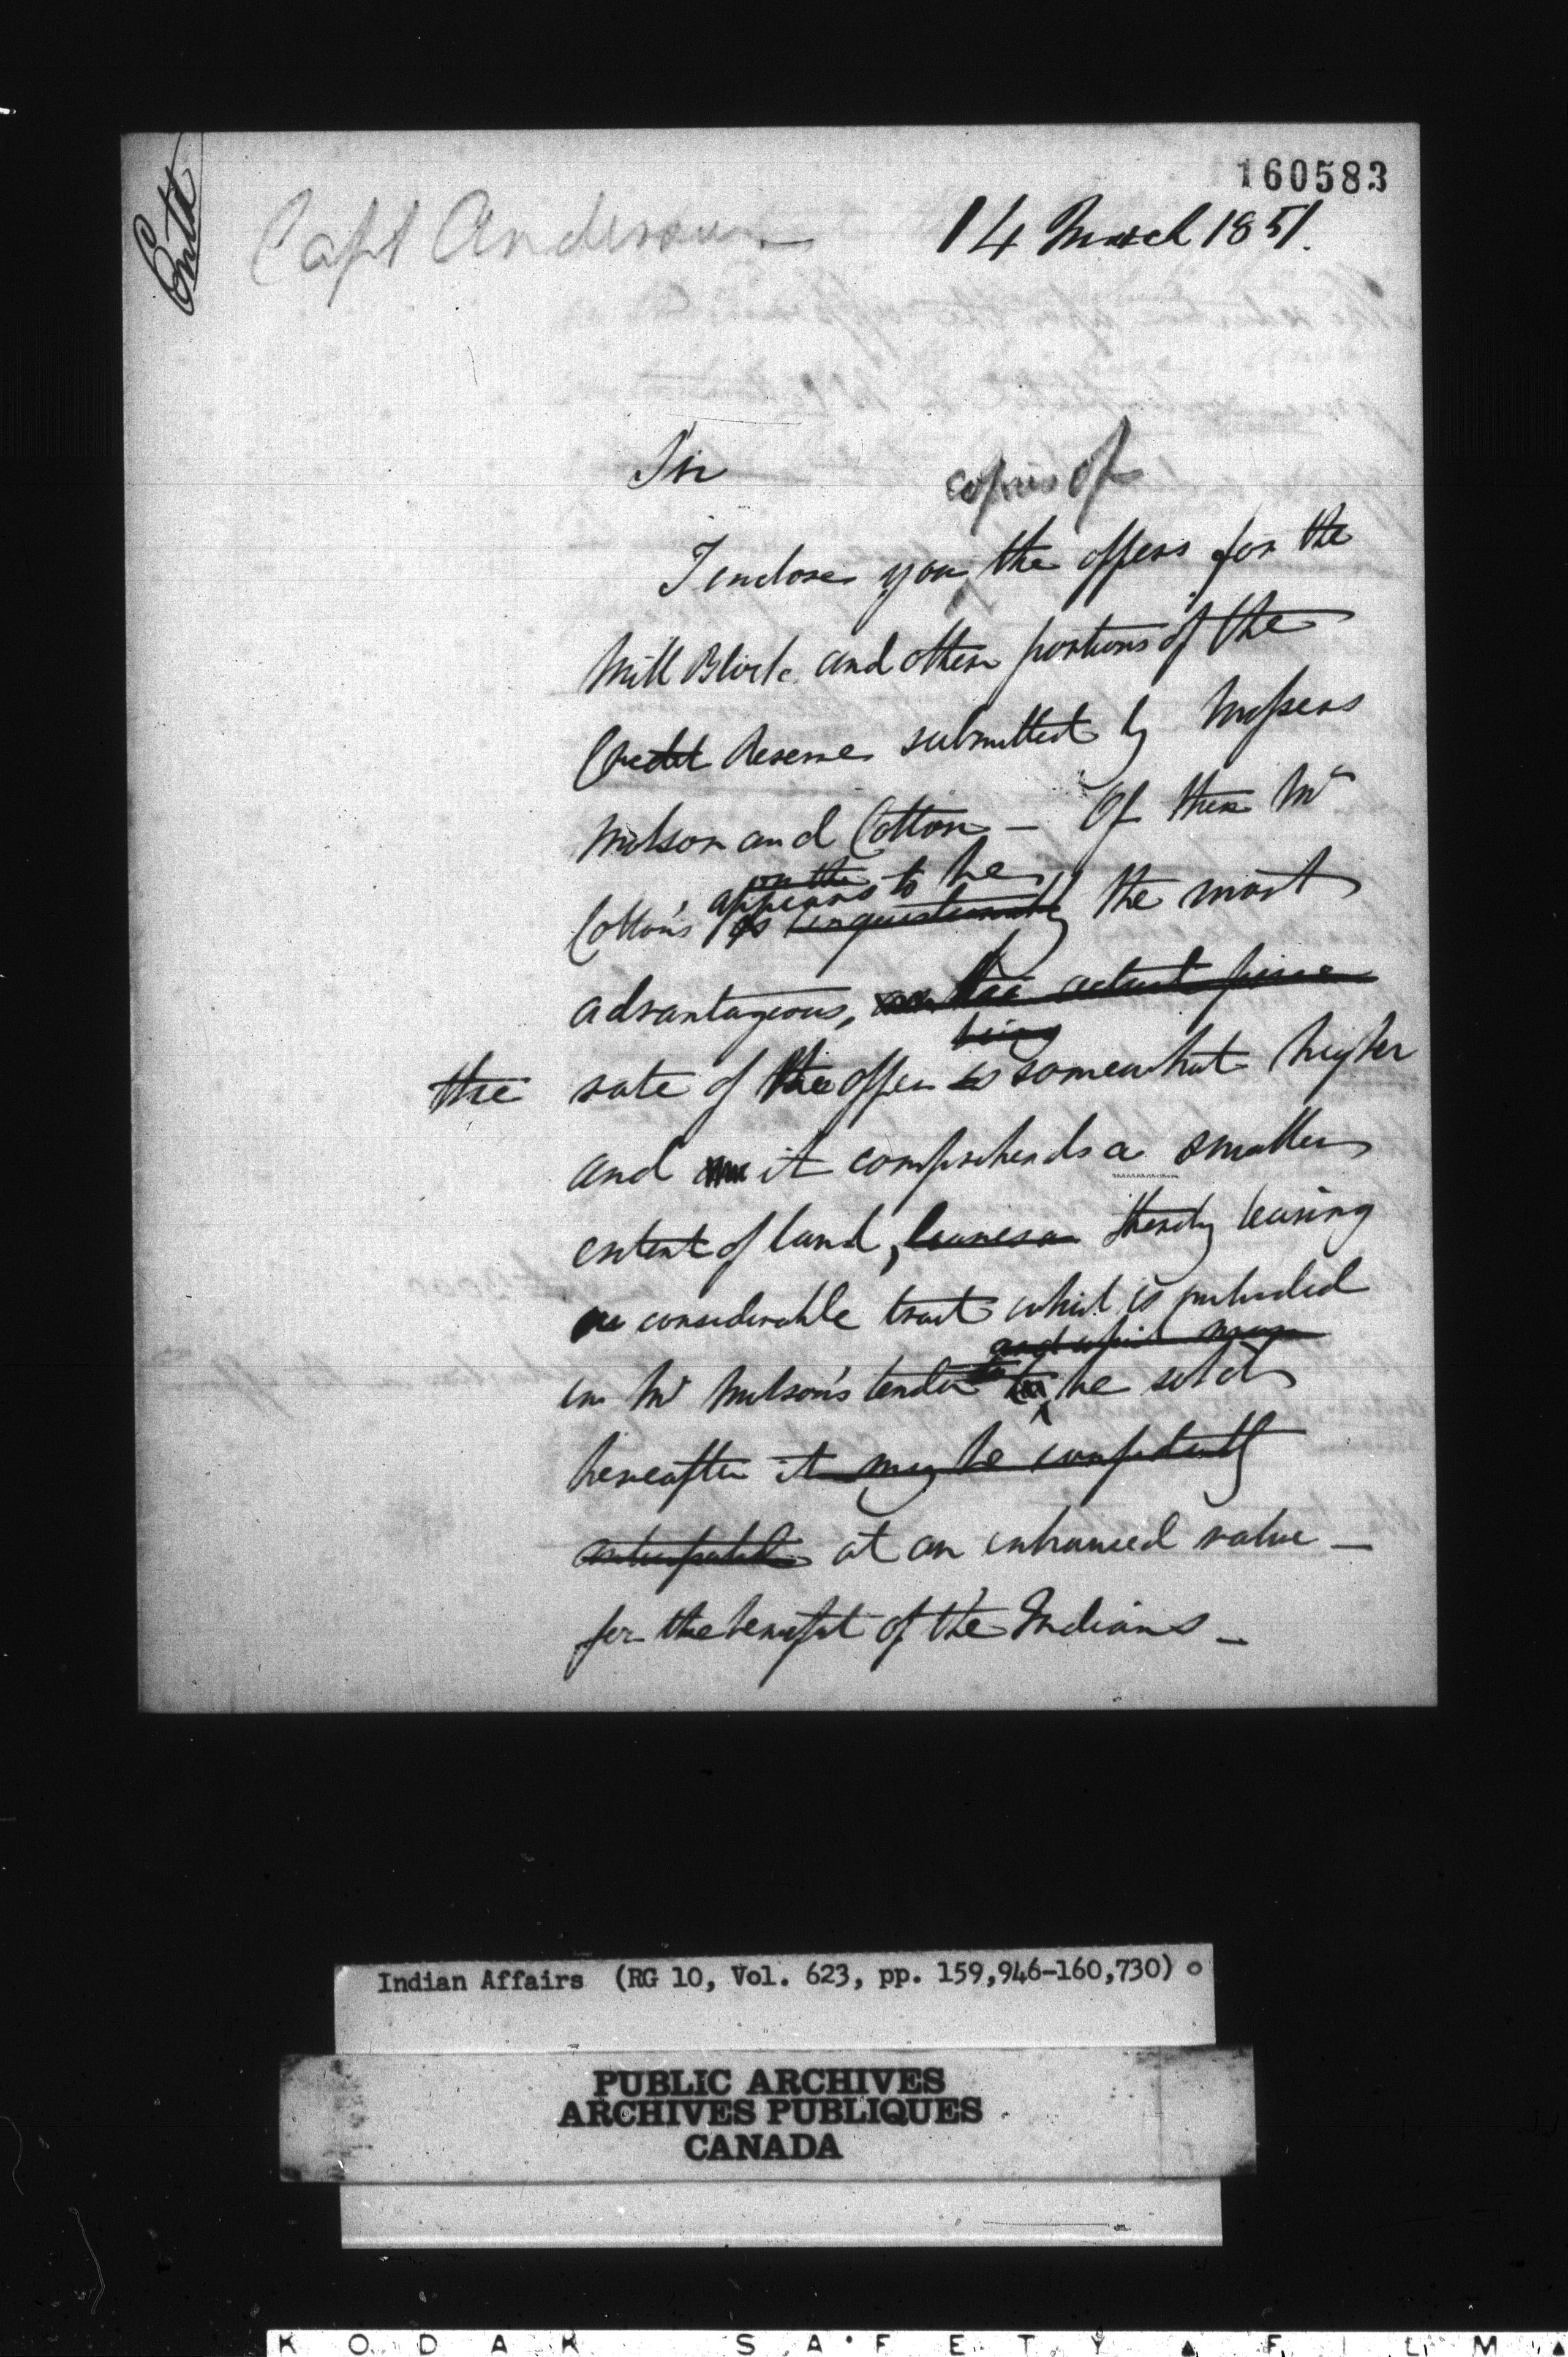 160583
Entd
Capt Anderson
14 March 1851.
Sir
copies of
I enclose you the offers for the
Mill Block and other portions of the
Credit Reserve submitted by Messers
Wilson and Cotton — Of these Mr
on the
appears to be
Cotton's is unquestionably the most
advantageous, on the actual price
being
the rate of the offer is somewhat higher
and it comprehends a smaller
extent of land, leaves a thereby leaving
a considerable tract which is included
and which may
in Mr Wilson's tender to be sold
hereafter it may be confidently
anticipated at an enhanced value —
for the benefit of the Indians —
Indian Affairs (RG 10, Vol. 623, pp. 159,946-160,730)
PUBLIC ARCHIVES
ARCHIVES PUBLIQUES
CANADA
KODAK SAFETY FILM